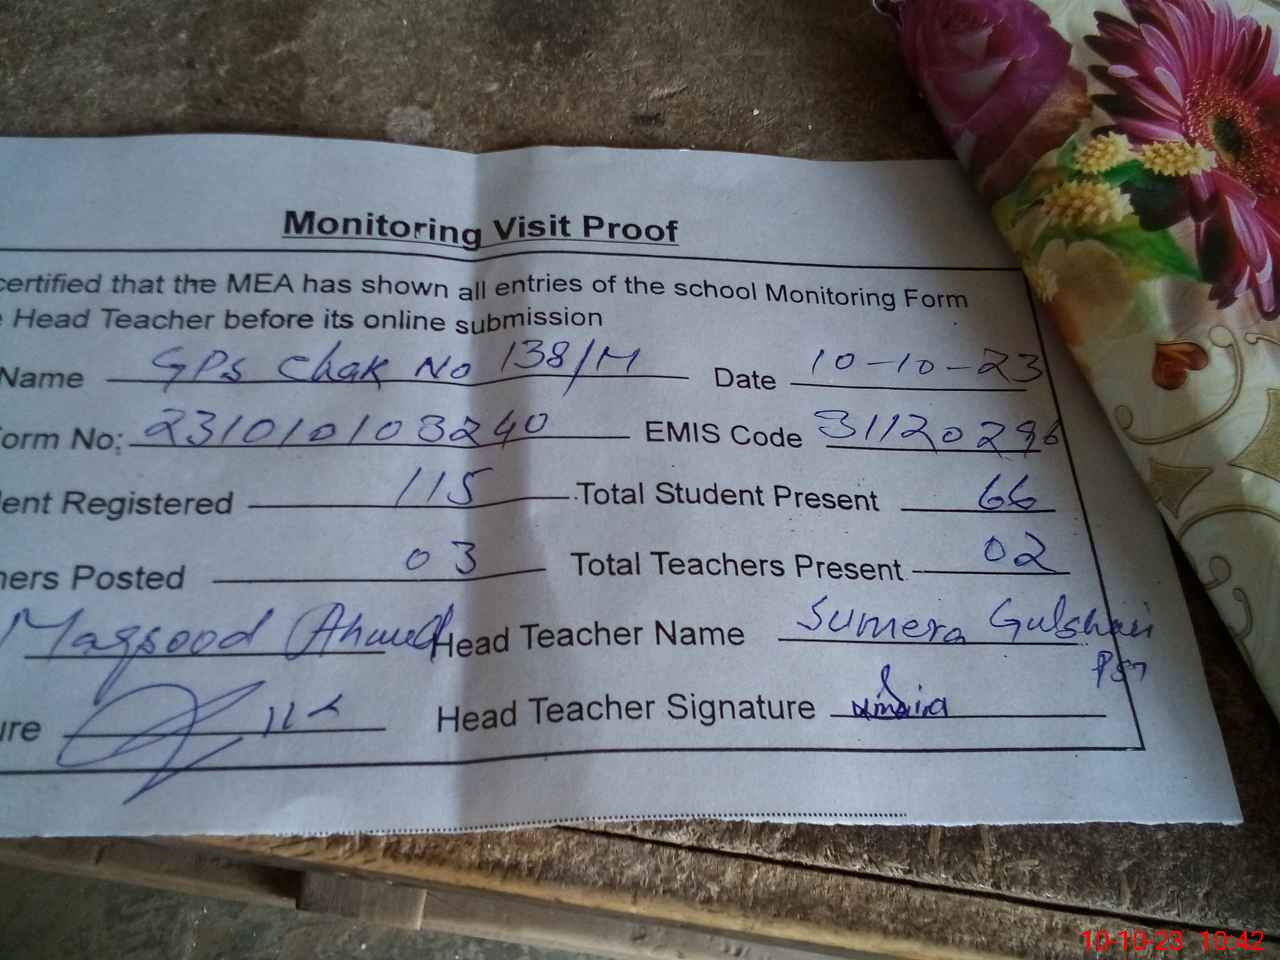 Monitoring Visit Proof
certified that the MEA has shown all entries of the school Monitoring Form
Head Teacher before its online submission
Name GPS Chak No 138/M Date 10-10-23
orm No: 231010103240 EMIS Code 31120296
ent Registered 115 Total Student Present 66
ners Posted 03 Total Teachers Present 02
Maqsood Ahmed Head Teacher Name Sumera Gulshan
PST
ure Head Teacher Signature
10-10-23 10:42